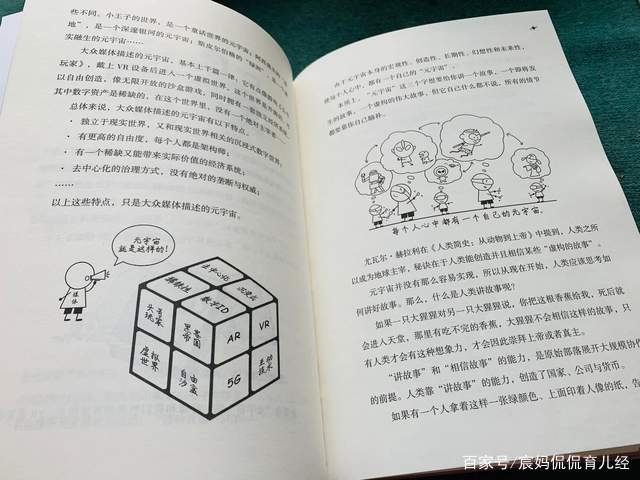 些不同。小王子的世界，是一个童话世界的元宇宙；阿西
地”，是一个深邃银河的元宇宙；斯皮尔伯格的“绿洲”，是一个
实融生的元宇宙……
大众媒体描述的元宇宙，基本上千篇一律，它有点像
玩家》，戴上 VR 设备后进入一个虚拟世界，这个世界
以自由创造，像无限开放的沙盒游戏，同时拥有一套
其中数字资产是稀缺的，在这个世界里，没有一个绝对主宰者……
总体来说，大众媒体描述的元宇宙有以下特点。
· 独立于现实世界，又和现实世界相关的沉浸式数字世界；
· 有更高的自由度，每个人都是架构师；
· 有一个稀缺又能带来实际价值的经济系统；
· 去中心化的治理方式，没有绝对的垄断与权威；
……
以上这些特点，只是大众媒体描述的元宇宙。
元宇宙
就是这样的！
媒体
去中心化
沉浸式
稀缺性
数字ID
头号
玩家
黑客
帝国
AR
VR
虚拟
世界
自由
沙盒
5G
由于元宇宙本身的宏观性、创造性、长期性、幻想性和未来性，
使每个人心中，都有一个自己的“元宇宙”。
本质上，“元宇宙”这三个字想要给你讲一个故事，一个即将发
生的故事，一个虚构的伟大故事，但它自己什么都不说，所有的情节
都要靠你自己脑补。
每个人心中都有一个自己的元宇宙。
尤瓦尔·赫拉利在《人类简史：从动物到上帝》中提到，人类之所
以成为地球主宰，秘诀在于人类能创造并且相信某些“虚构的故事”。
元宇宙并没有那么容易实现，所以从现在开始，人类应该思考如
何讲好故事。那么，什么是人类讲故事呢？
如果一只大猩猩对另一只大猩猩说，你把这根香蕉给我，死后就
会进入天堂，那里有吃不完的香蕉，大猩猩不会相信这样的故事，只
有人类才会有这种想象力，才会因此崇拜上帝或者真主。
“讲故事”和“相信故事”的能力，是原始部落展开大规模协作
的前提。人类靠“讲故事”的能力，创造了国家、公司与货币。
如果有一个人拿着这样一张绿颜色、上面印着人像的纸，告
百家号/宸妈侃侃育儿经